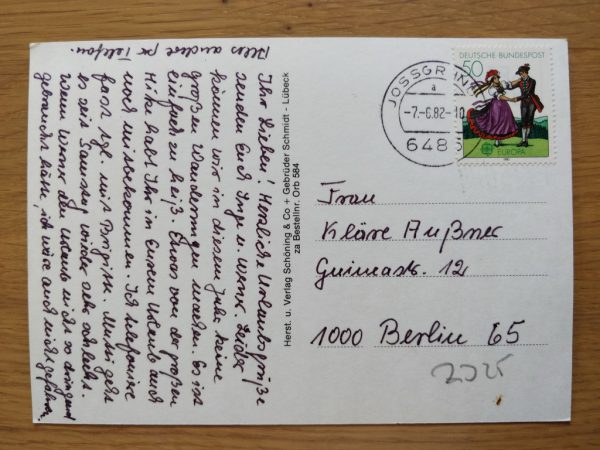 Ihr Lieben! Herzliche Urlaubsgrüße
senden Euch Inge u. Werner. Leider
können wir in diesem Jahr keine
großen Wanderungen machen. Es ist
einfach zu heiß. Etwas von der großen
Hitze habt Ihr in Eurem Urlaub auch
noch mitbekommen. Ich telefoniere
fast tgl. mit Brigitte. Mutti geht
es seit Samstag wieder sehr schlecht.
Wenn Werner den Urlaub nicht so dringend
gebraucht hätte, ich wäre auch nicht gefahren.
Alles andere per Telefon.
Herst. u. Verlag Schöning & Co + Gebrüder Schmidt - Lübeck
za Bestellnr. Orb 584
DEUTSCHE BUNDESPOST
50
EUROPA
JOSSGR
a
-7.-6.82-10
648
Frau
Kläre Außner
Guineastr. 12
1000 Berlin 65
2025